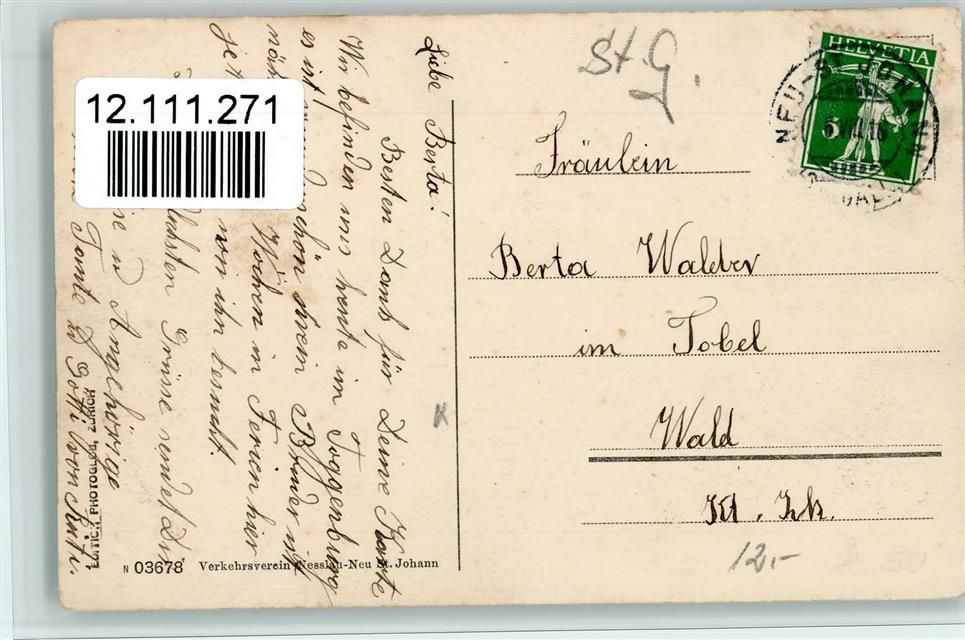 St. G.
HELVETIA
NEU-ST. JOHANN
Fräulein
Berta Walder
im Tobel
Wald
Kt. Zch.
12.-
12.111.271
Liebe Berta!
Besten Dank für Deine Karte
Wir befinden uns heute im Toggenburg
es ist schön Bruder ist
Wochen in Ferien hier
nun ihn besucht.
Grüsse sendet Dir
u Angehörige
Tante u Götti von Rüti.
EDITION PHOTOGLOB, ZÜRICH
N 03678 Verkehrsverein Nesslau-Neu St. Johann
K